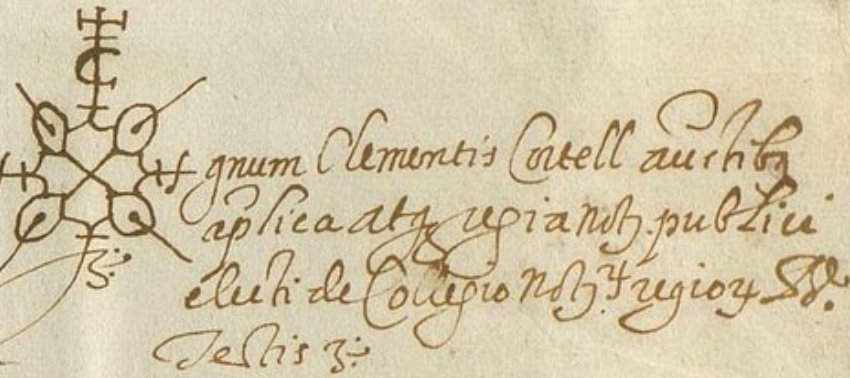 gnum Clementis Cortell auctibꝫ
aplica atqꝫ regia noth publici
electi de Collegio noth regioꝝ
Testis